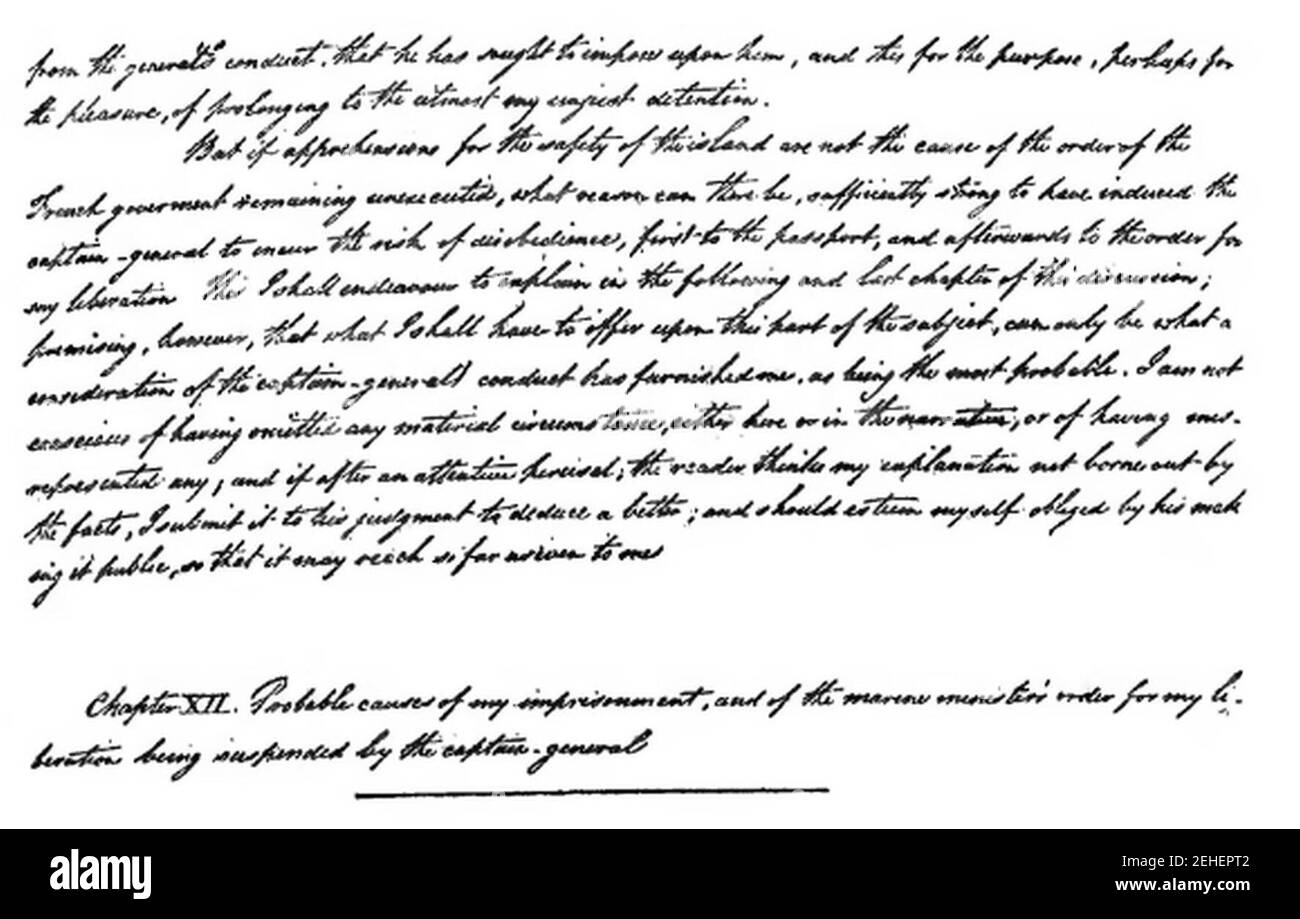 from the general's conduct, that he has sought to impose upon them, and this for the purpose, perhaps for
the pleasure, of prolonging to the utmost my unjust detention.
But if apprehensions for the safety of the island are not the cause of the order of the
French goverment remaining unexecuted, what reason can there be, sufficiently strong to have induced the
captain-general to incur the risk of disobedience, first to the passport, and afterwards to the order for
my liberation This I shall endeavour to explain in the following and last chapter of this discussion;
premising, however, that what I shall have to offer upon this part of the subject, can only be what a
consideration of the captain-general's conduct has furnished me, as being the most probable. I am not
conscious of having omitted any material circumstance, either here or in the narrative, or of having mis-
represented any; and if after an attentive perusal, the reader thinks my explanation not borne out by
the facts, I submit it to his judgment to deduce a better; and should esteem myself obliged by his mak
ing it public, so that it may reach so far as even to me
Chapter XII. Probable causes of my imprisonment, and of the marine minister's order for my li-
beration being suspended by the captain-general
alamy
Image ID: 2EHEPT2
www.alamy.com